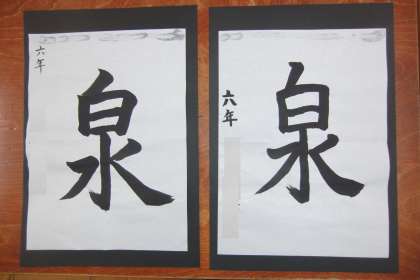 六年
泉
六年
泉